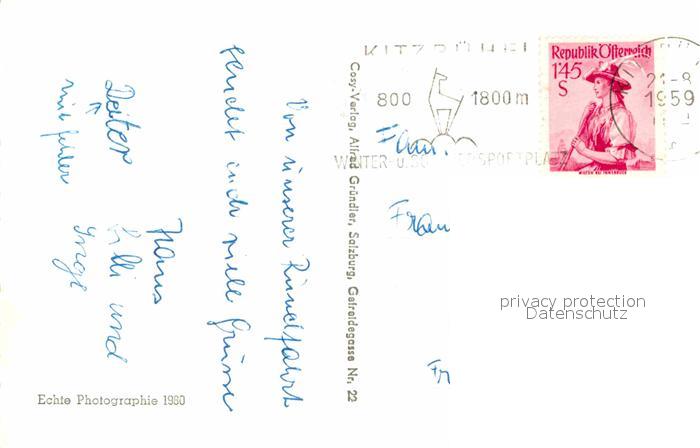 Von unserer Rundfahrt
sendet euch viele Grüsse
Hans
Lilli und
Inge
Deiter
mit fehler
Echte Photographie 1980
Cosy-Verlag, Alfred Gründler, Salzburg, Getreidegasse Nr. 22
KITZBÜHEL
800 1800m
WINTER-U.SO SPORTPLATZ
Republik Österreich
1'45
S
WIPPTAL BEI INNSBRUCK
21-8
1959
Fam.
Frau
Fr
privacy protection
Datenschutz